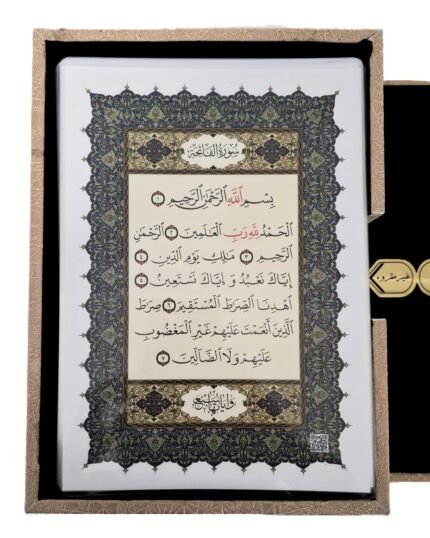 سُورَةُ الْفَاتِحَة
بِسْمِ ٱللَّهِ ٱلرَّحْمَٰنِ ٱلرَّحِيمِ ١
ٱلْحَمْدُ لِلَّهِ رَبِّ ٱلْعَٰلَمِينَ ٢ ٱلرَّحْمَٰنِ
ٱلرَّحِيمِ ٣ مَٰلِكِ يَوْمِ ٱلدِّينِ ٤
إِيَّاكَ نَعْبُدُ وَ إِيَّاكَ نَسْتَعِينُ ٥
ٱهْدِنَا ٱلصِّرَٰطَ ٱلْمُسْتَقِيمَ ٦ صِرَٰطَ
ٱلَّذِينَ أَنْعَمْتَ عَلَيْهِمْ غَيْرِ ٱلْمَغْضُوبِ
عَلَيْهِمْ وَلَا ٱلضَّآلِّينَ ٧
غیر مقروه